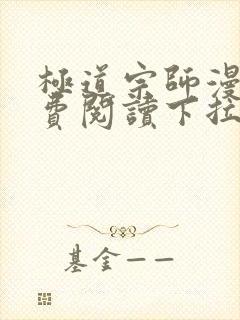 極道宗師漫
費閱讀下拉
基金——